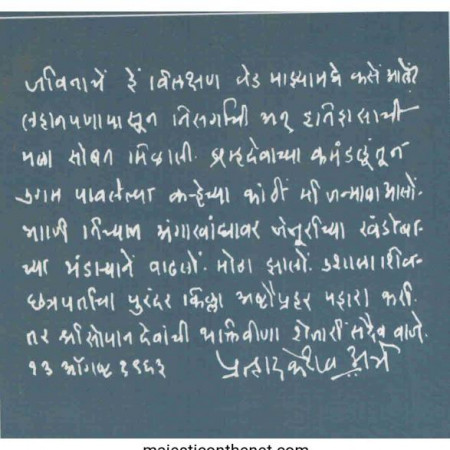 जीवनाचें हें विलक्षण वेड माझ्यामधे कसें आलें?
लहानपणापासून निसर्गाची अन् इतिहासाची
मला सोबत मिळाली. ब्रह्मदेवाच्या कमंडलूंतून
उगम पावलेल्या कऱ्हेच्या कांठीं मी जन्माला आलों.
आणी तिच्याच अंगाखांद्यावर जेजूरीच्या खंडोबा-
च्या भंडाऱ्याने वाढलों. मोठा झालों. उशाला शिव-
छत्रपतींचा पुरंदर किल्ला अष्टौप्रहर पहारा करी.
तर श्री सोपान देवांची भक्तिवीणा शेजारीं सदैव वाजे.
१३ ऑगस्ट १९६३ प्रल्हाद केशव अत्रे
majesticonthenet.com